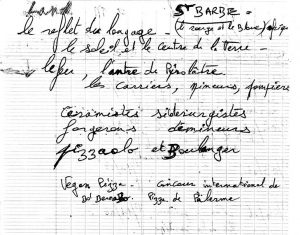 St BARBE -
le reflet du langage - (le rouge et le Blanc)
le soleil et le centre de la Terre -
le feu, l'antre de
les carriers, mineurs, pompiers
céramistes sidérurgistes
forgerons démineurs
pizzaolo et Boulanger
Vegan Pizza - Concour international de
Pizza de Palerme